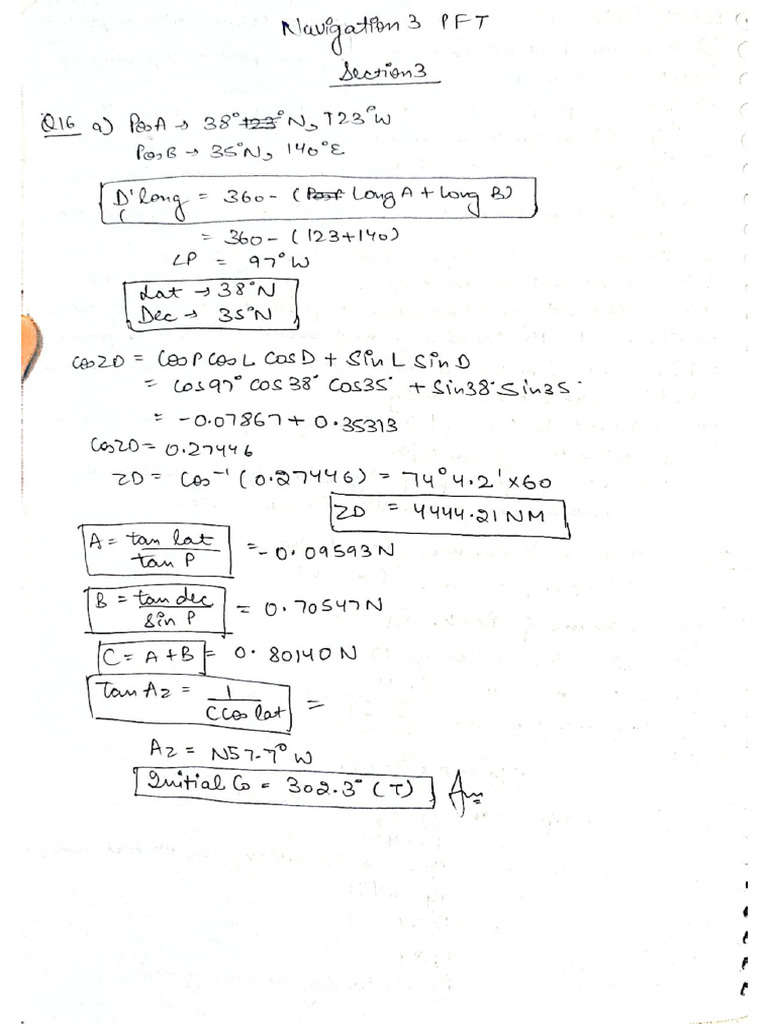 Navigation 3 PFT
Section 3
Q16 a) Pos A → 38° 123° N, 123° W
Pos B → 35° N, 140° E
D'long = 360 - (Post Long A + Long B)
= 360 - (123+140)
LP = 97° W
Lat → 38° N
Dec → 35° N
Cos ZD = Cos P Cos L Cos D + Sin L Sin D
= Cos 97° Cos 38° Cos 35° + Sin 38° Sin 35°
= -0.07867 + 0.35313
Cos ZD = 0.27446
ZD = Cos⁻¹ (0.27446) = 74° 4.2' × 60
ZD = 4444.21 NM
A = tan lat / tan P = -0.09593 N
B = tan dec / Sin P = 0.70547 N
C = A + B = 0.80140 N
Tan Az = 1 / C Cos lat =
Az = N 57.7° W
Initial Co = 302.3° (T) Ans